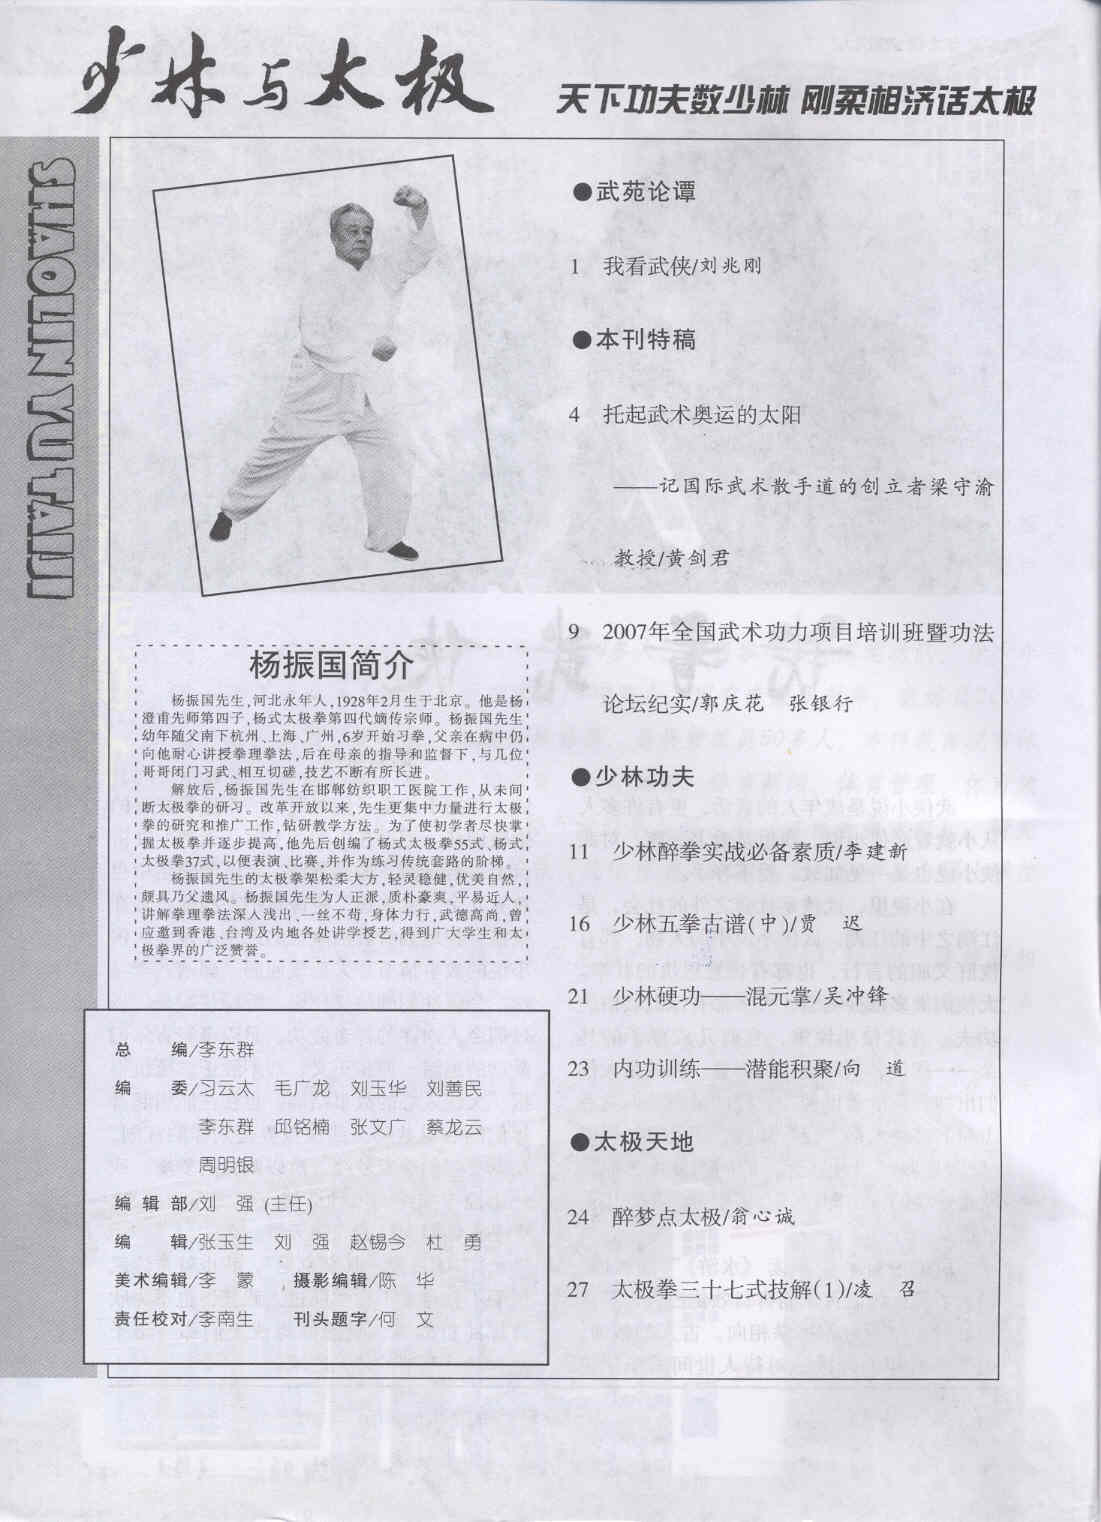 少林与太极
天下功夫数少林 刚柔相济话太极
SHAOLIN YU TAIJI
杨振国简介
杨振国先生,河北永年人,1928年2月生于北京。他是杨
澄甫先师第四子,杨式太极拳第四代嫡传宗师。杨振国先生
幼年随父南下杭州、上海、广州,6岁开始习拳,父亲在病中仍
向他耐心讲授拳理拳法,后在母亲的指导和监督下,与几位
哥哥闭门习武、相互切磋,技艺不断有所长进。
解放后,杨振国先生在邯郸纺织职工医院工作,从未间
断太极拳的研习。改革开放以来,先生更集中力量进行太极
拳的研究和推广工作,钻研教学方法。为了使初学者尽快掌
握太极拳并逐步提高,他先后创编了杨式太极拳55式、杨式
太极拳37式,以便表演、比赛,并作为练习传统套路的阶梯。
杨振国先生的太极拳架松柔大方,轻灵稳健,优美自然,
颇具乃父遗风。杨振国先生为人正派,质朴豪爽,平易近人,
讲解拳理拳法深入浅出,一丝不苟,身体力行,武德高尚,曾
应邀到香港、台湾及内地各处讲学授艺,得到广大学生和太
极拳界的广泛赞誉。
总 编/李东群
编 委/习云太 毛广龙 刘玉华 刘善民
李东群 邱铭楠 张文广 蔡龙云
周明银
编 辑 部/刘 强 (主任)
编 辑/张玉生 刘 强 赵锡今 杜 勇
美术编辑/李 蒙 摄影编辑/陈 华
责任校对/李南生 刊头题字/何 文
●武苑论谭
1 我看武侠/刘兆刚
●本刊特稿
4 托起武术奥运的太阳
——记国际武术散手道的创立者梁守渝
教授/黄剑君
9 2007年全国武术功力项目培训班暨功法
论坛纪实/郭庆花 张银行
●少林功夫
11 少林醉拳实战必备素质/李建新
16 少林五拳古谱(中)/贾 迟
21 少林硬功——混元掌/吴冲锋
23 内功训练——潜能积聚/向 道
●太极天地
24 醉梦点太极/翁心诚
27 太极拳三十七式技解(1)/凌 召